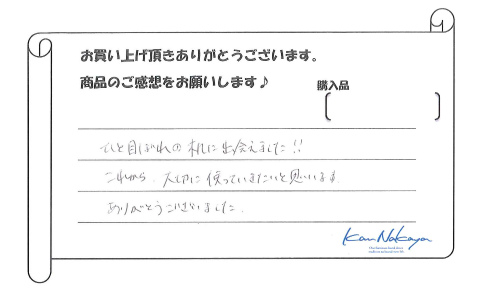 お買い上げ頂きありがとうございます。
商品のご感想をお願いします♪
購入品
ひと目ぼれの机に出会えました!!
これから、大切に使っていきたいと思います。
ありがとうございました。
Kan Nakaya